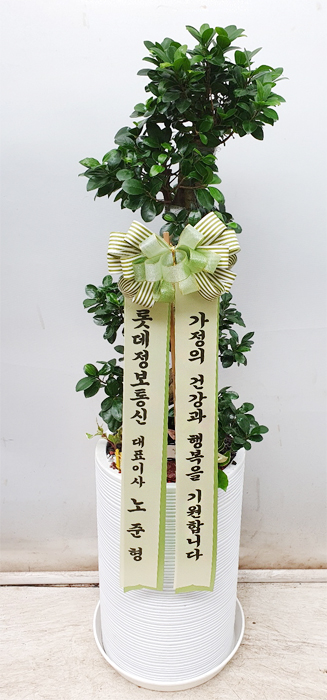 가정의 건강과 행복을 기원합니다
롯데정보통신 대표이사 노준형